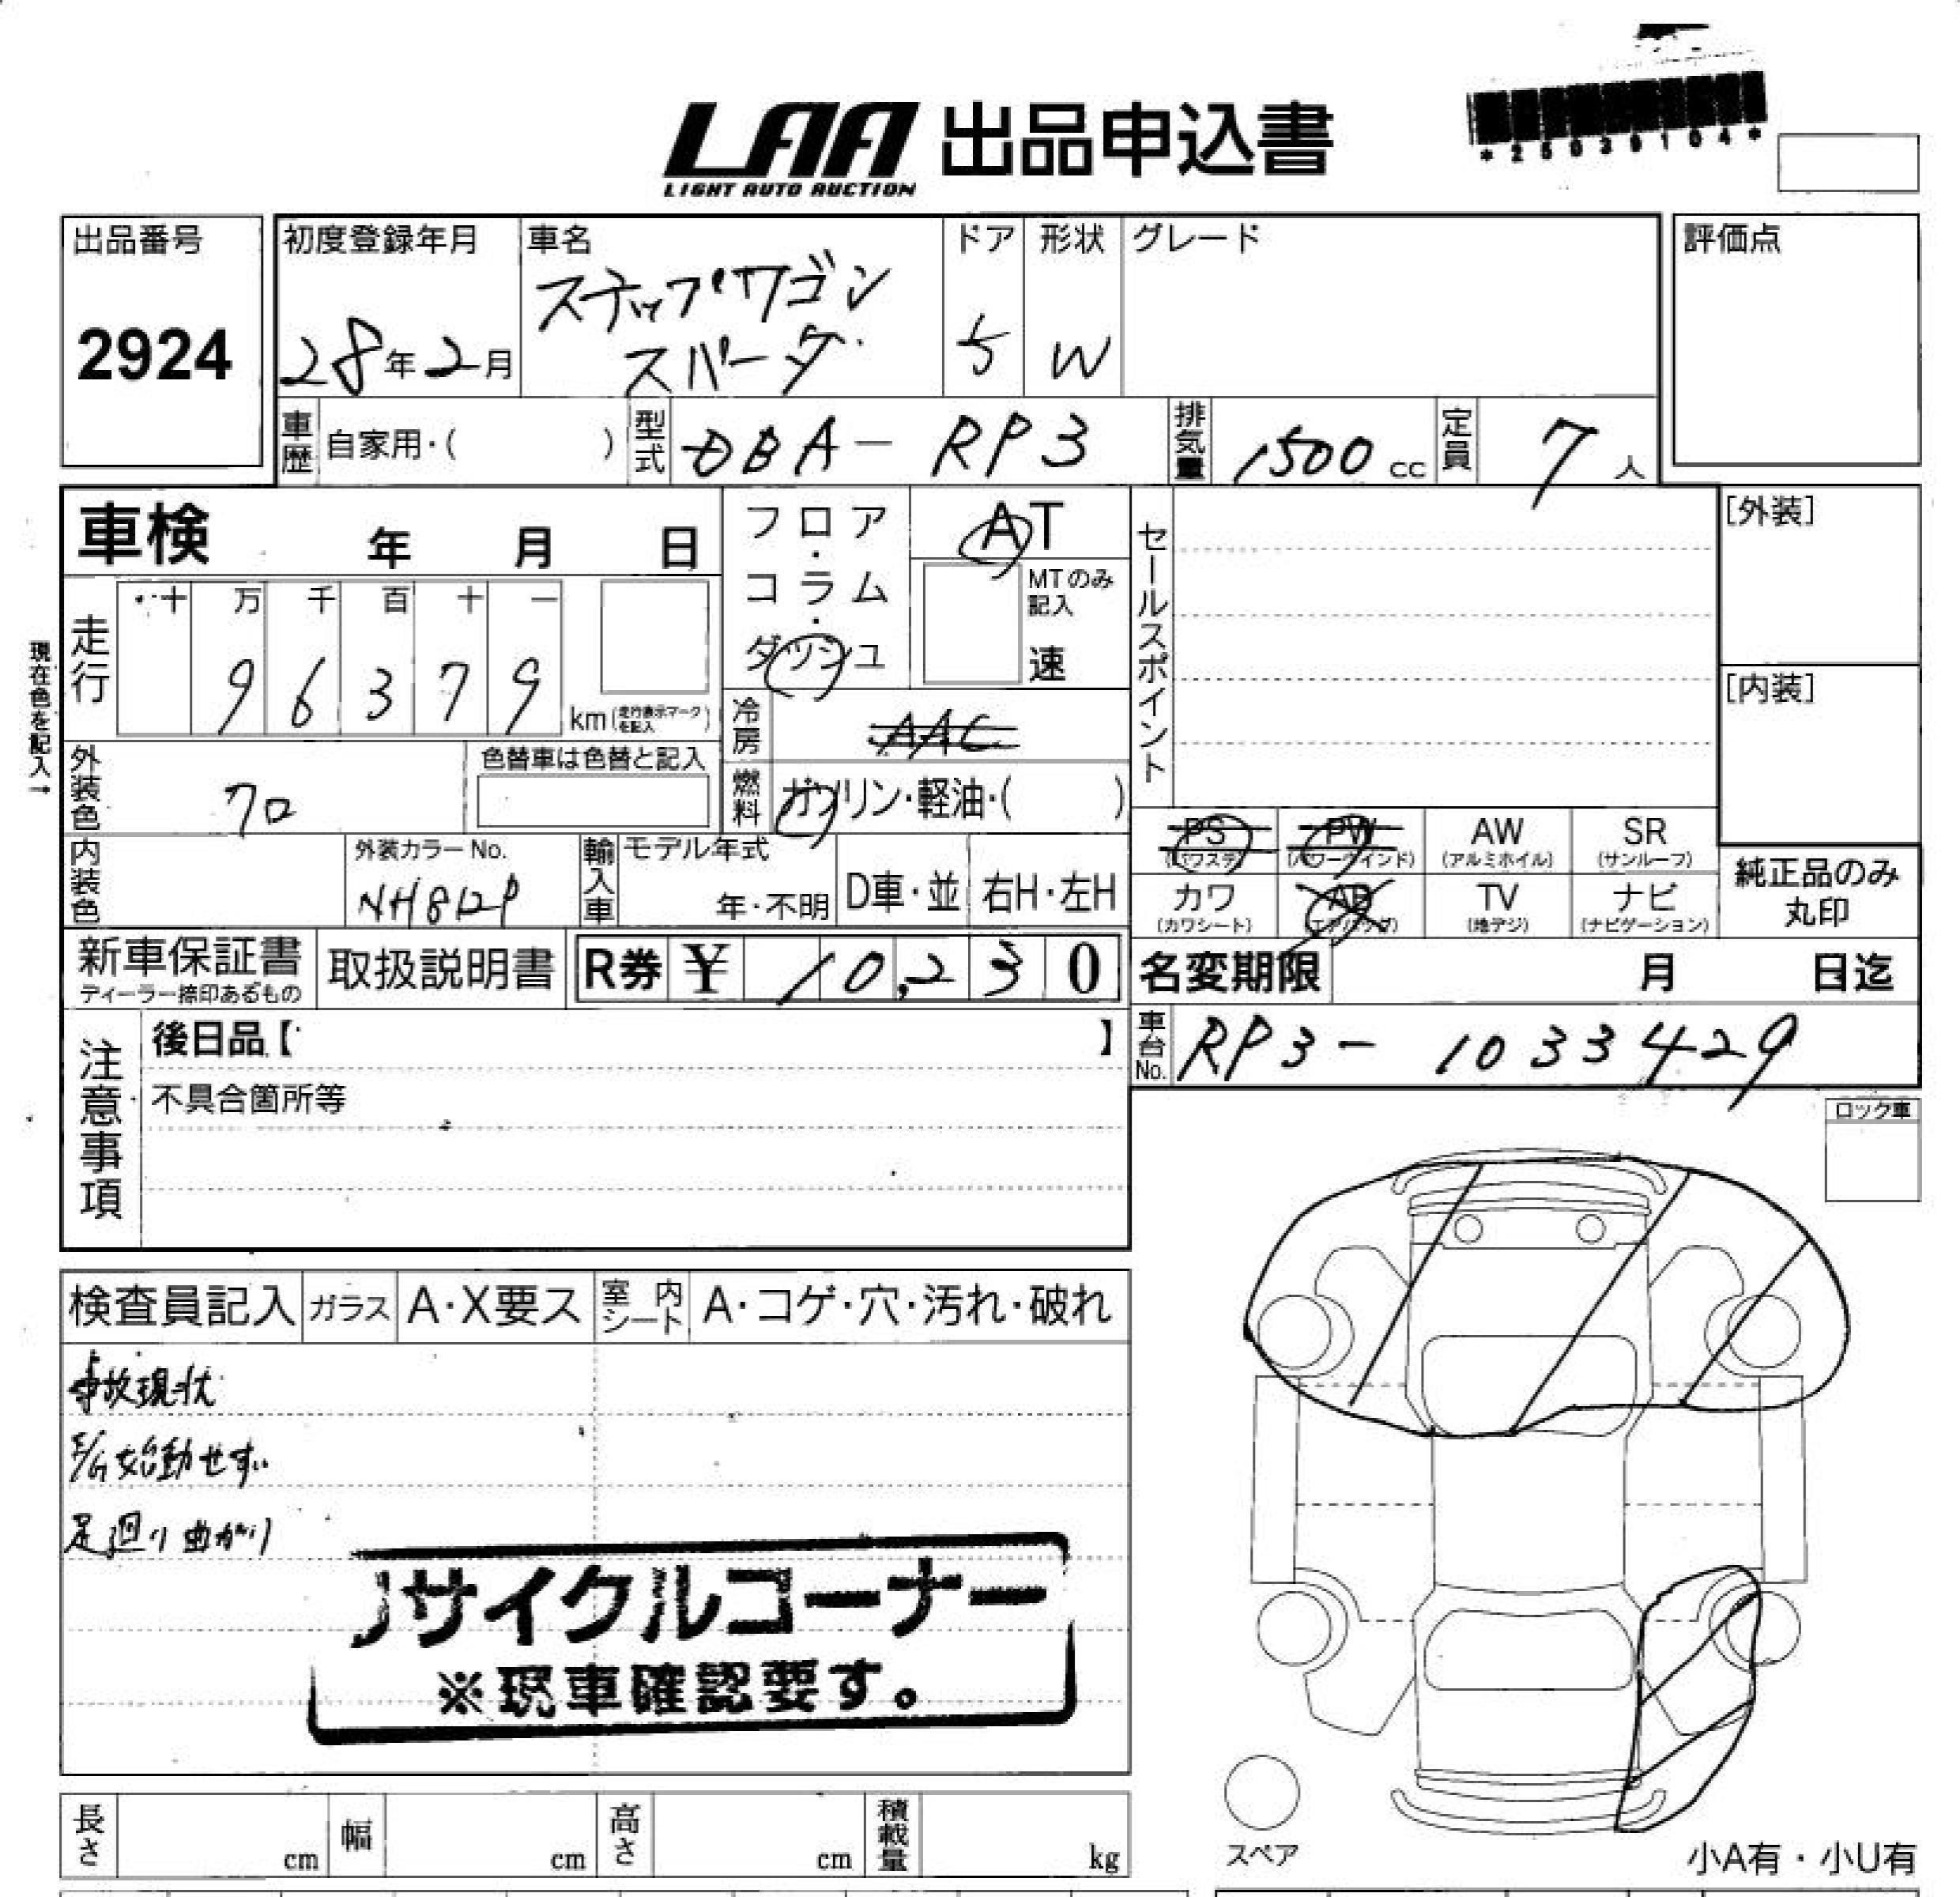 LAA 出品申込書
LIGHT AUTO AUCTION
*25039104*
出品番号
2924
初度登録年月
28年2月
車名
ステップワゴン
スパーダ
ドア
5
形状
W
グレード
評価点
車歴
自家用・( )
型式
DBA-RP3
排気量
1500cc
定員
7人
車検 年 月 日
フロア・コラム・ダッシュ
AT
MTのみ記入
速
セールスポイント
[外装]
[内装]
現在色を記入→
走行
十 万 千 百 十 一
9 6 3 7 9
km(走行表示マークを記入)
冷房
AAC
燃料
ガソリン・軽油・( )
外装色
クロ
色替車は色替と記入
内装色
外装カラーNo.
NH812P
輸入車
モデル年式
年・不明
D車・並
右H・左H
PS
(パワステ)
PW
(パワーウインド)
AW
(アルミホイル)
SR
(サンルーフ)
カワ
(カワシート)
AB
(エアバッグ)
TV
(地デジ)
ナビ
(ナビゲーション)
純正品のみ
丸印
新車保証書
ディーラー捺印あるもの
取扱説明書
R券 ¥ 10,230
名変期限 月 日迄
車台No.
RP3-1033429
注意事項
後日品【 】
不具合箇所等
ロック車
検査員記入
ガラス
A・X要ス
室内シート
A・コゲ・穴・汚れ・破れ
事故現状
E/G始動せず
足廻り曲がり
リサイクルコーナー
※現車確認要す。
長さ cm
幅 cm
高さ cm
積載量 kg
スペア
小A有・小U有